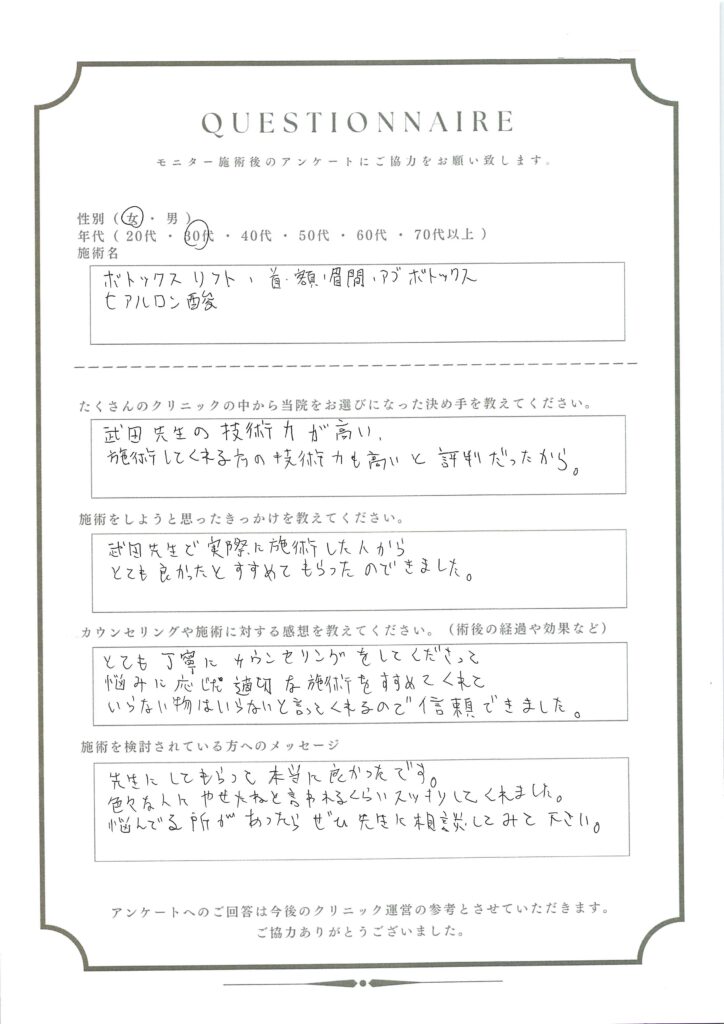 QUESTIONNAIRE
モニター施術後のアンケートにご協力をお願い致します。
性別 ( 女 ・ 男 )
年代 ( 20代 ・ 30代 ・ 40代 ・ 50代 ・ 60代 ・ 70代以上 )
施術名
ボトックスリフト、首・額・眉間・アゴボトックス
ヒアルロン酸
たくさんのクリニックの中から当院をお選びになった決め手を教えてください。
武田先生の技術力が高い、
施術してくれる方の技術力も高いと評判だったから。
施術をしようと思ったきっかけを教えてください。
武田先生で実際に施術した人から
とても良かったとすすめてもらったのできました。
カウンセリングや施術に対する感想を教えてください。（術後の経過や効果など）
とても丁寧にカウンセリングをしてくださって
悩みに応じた適切な施術をすすめてくれて
いらない物はいらないと言ってくれるので信頼できました。
施術を検討されている方へのメッセージ
先生にしてもらって本当に良かったです。
色々な人にやせたねと言われるくらいスッキリしてくれました。
悩んでる所があったらぜひ先生に相談してみて下さい。
アンケートへのご回答は今後のクリニック運営の参考とさせていただきます。
ご協力ありがとうございました。